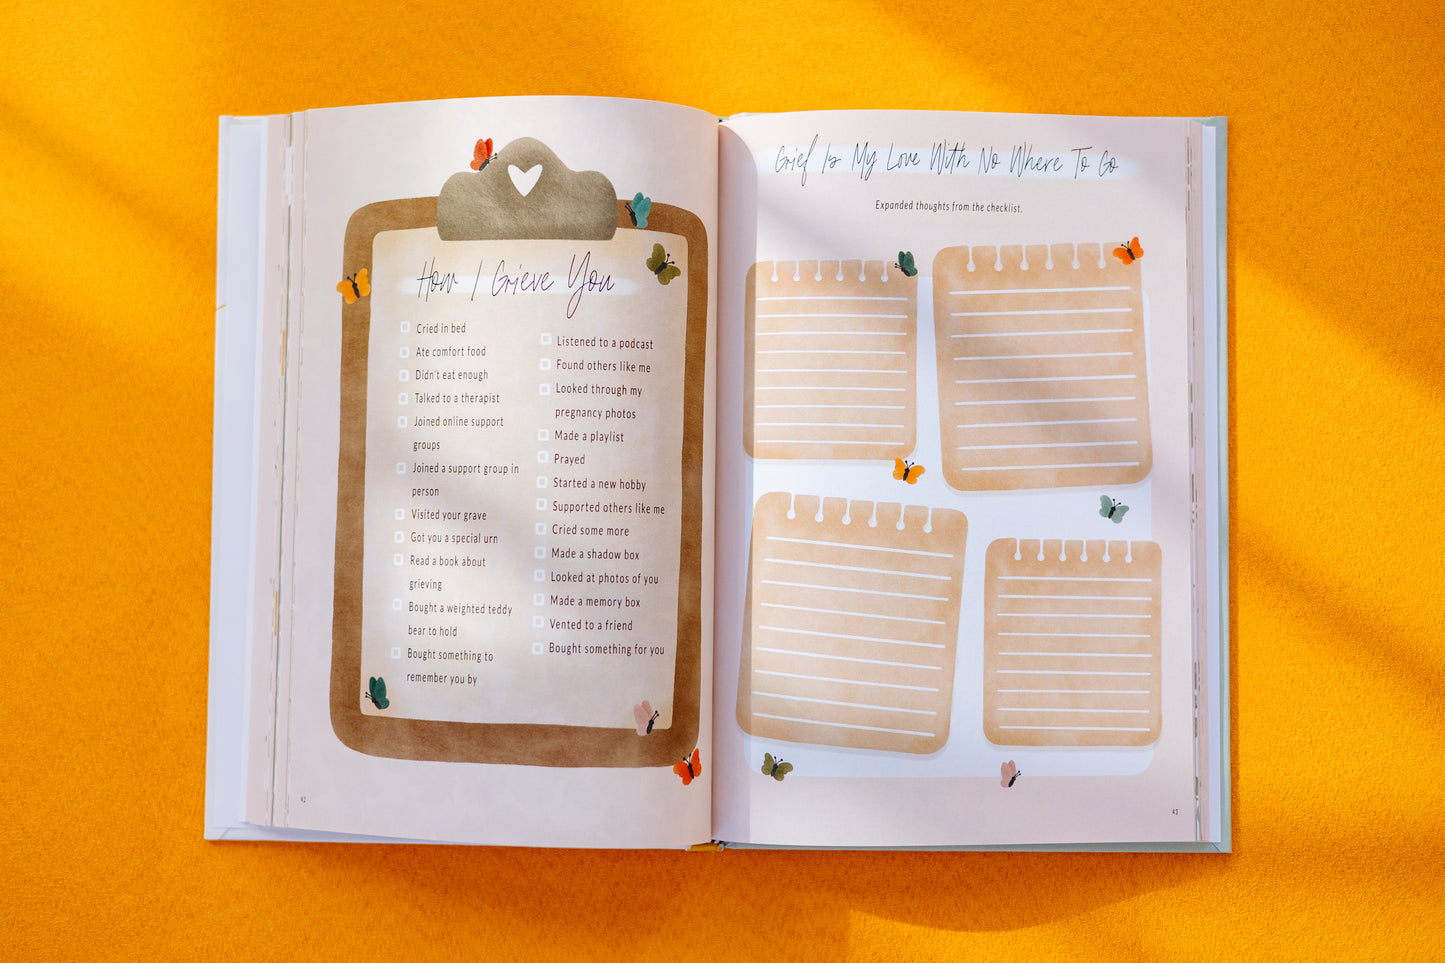 How I Grieve You
Cried in bed
Ate comfort food
Didn't eat enough
Talked to a therapist
Joined online support
groups
Joined a support group in
person
Visited your grave
Got you a special urn
Read a book about
grieving
Bought a weighted teddy
bear to hold
Bought something to
remember you by
Listened to a podcast
Found others like me
Looked through my
pregnancy photos
Made a playlist
Prayed
Started a new hobby
Supported others like me
Cried some more
Made a shadow box
Looked at photos of you
Made a memory box
Vented to a friend
Bought something for you
42
Grief Is My Love With No Where To Go
Expanded thoughts from the checklist.
43